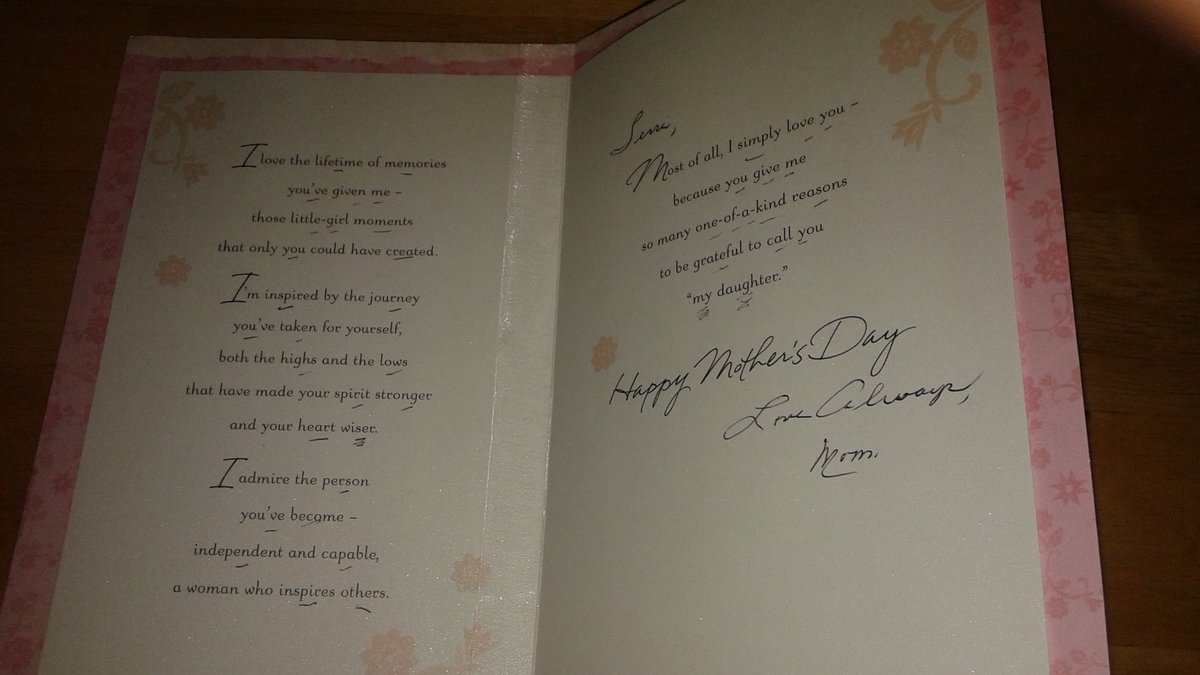 I love the lifetime of memories
you've given me –
those little-girl moments
that only you could have created.
I'm inspired by the journey
you've taken for yourself,
both the highs and the lows
that have made your spirit stronger
and your heart wiser.
I admire the person
you've become –
independent and capable,
a woman who inspires others.
Most of all, I simply love you –
because you give me
so many one-of-a-kind reasons
to be grateful to call you
“my daughter.”
Happy Mother's Day
Love Always,
Mom.